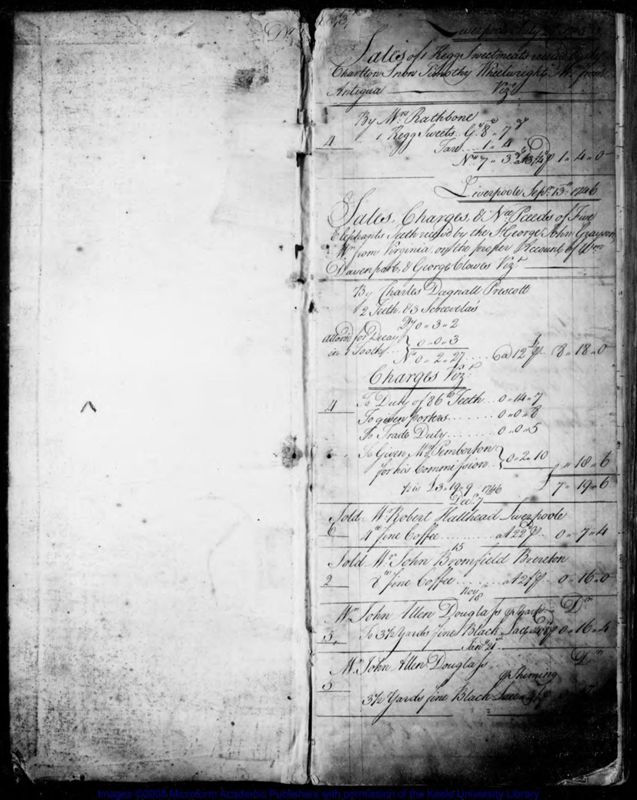 Liverpoole July
Sales of 1 Kegg Sweetmeats receivd by
Charlton Snow Timothy Wheelwright Mr from
Antigua Vizt
By Mr Rathbone
4 1 Kegg Sweets Gs 8 " 7
Tare 1 " 4
Nt 7 " 3 1 " 4 " 0
Liverpoole Septr 13th 1746
Sales, Charges, & Nt Pceeds of Five
Elephants Teeth receivd by the St George John Grayson
Mr from Virginia on the proper Account of
Davenport, & George Clowes Vizt
By Charles Dagnall Prescott
2 Teeth & 3 Screvelas
Qt 0 " 3 " 2
allow'd for Decay
in Tooth 0 " 0 " 3
Nt 0 " 2 " 27 a 12 8 " 18 " 0
Charges Vizt
4 To Duty of 86 lb Teeth 0 " 14 " 7
To given Porters 0 " 0 " 8
To Trade Duty 0 " 0 " 5
To Given Mr Pemberton
for his Commission 0 " 2 " 10 " 18 " 6
7 " 19 " 6
1746
Decr 7
Sold Mr Robert Hallhead Liverpoole
6 4 lb fine Coffee a 22d 0 " 7 " 4
15
Sold Mr John Bromfield Brereton
2 8 lb fine Coffee a 2/ 0 " 16 " 0
Novr 18
Mr John Allen Douglass Dr
5 To 3½ Yards fine Black 0 " 16 " 4
Janry 21
Mr John Allen Douglass Dr
5 3½ Yards fine Black Lace
Images ©2008 Microform Academic Publishers with permission of the Keele University Library